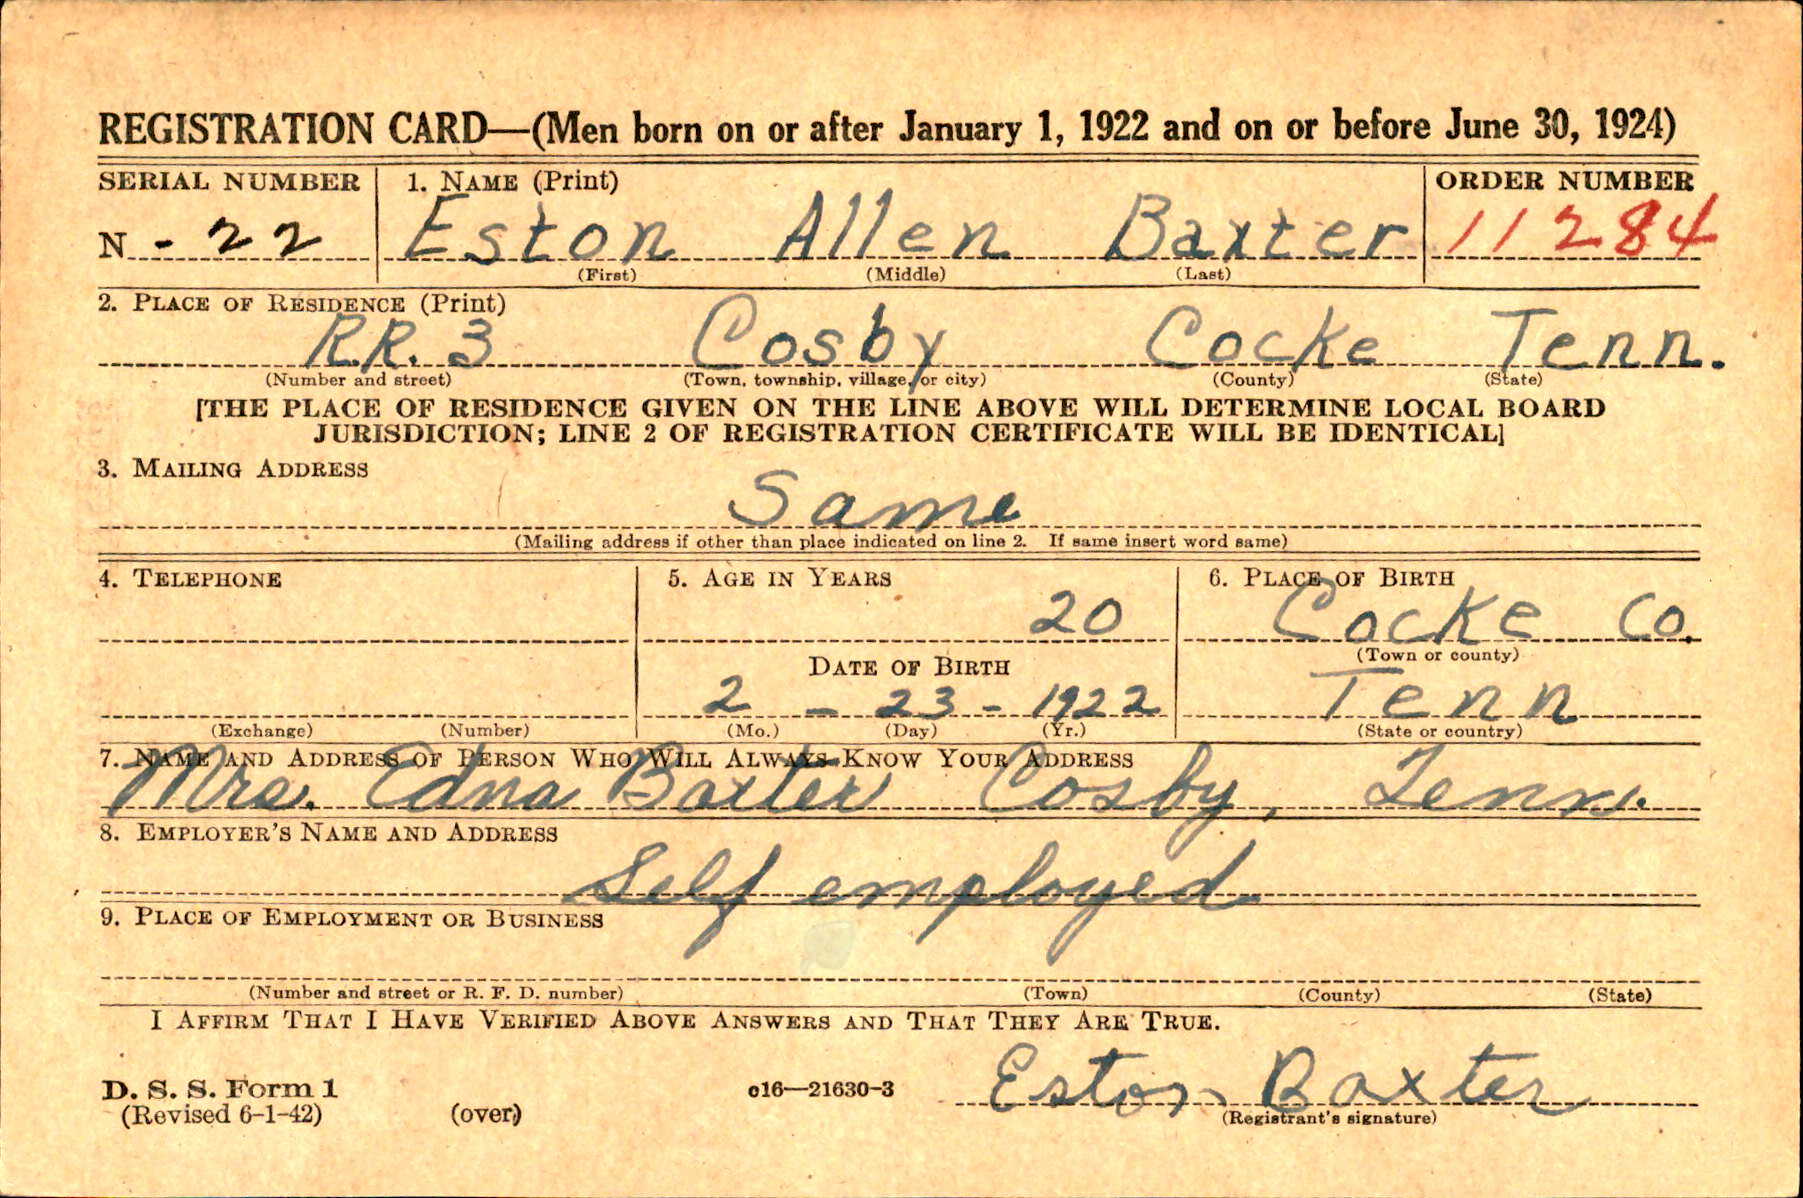 REGISTRATION CARD—(Men born on or after January 1, 1922 and on or before June 30, 1924)
SERIAL NUMBER 1. NAME (Print) ORDER NUMBER
N - 22 Eston Allen Baxter 11284
(First) (Middle) (Last)
2. PLACE OF RESIDENCE (Print)
R.R. 3 Cosby Cocke Tenn.
(Number and street) (Town, township, village, or city) (County) (State)
[THE PLACE OF RESIDENCE GIVEN ON THE LINE ABOVE WILL DETERMINE LOCAL BOARD
JURISDICTION; LINE 2 OF REGISTRATION CERTIFICATE WILL BE IDENTICAL]
3. MAILING ADDRESS
Same
(Mailing address if other than place indicated on line 2. If same insert word same)
4. TELEPHONE 5. AGE IN YEARS 6. PLACE OF BIRTH
20 Cocke Co.
DATE OF BIRTH (Town or county)
2 - 23 - 1922 Tenn
(Exchange) (Number) (Mo.) (Day) (Yr.) (State or country)
7. NAME AND ADDRESS OF PERSON WHO WILL ALWAYS KNOW YOUR ADDRESS
Mrs. Edna Baxter Cosby, Tenn.
8. EMPLOYER'S NAME AND ADDRESS
Self employed
9. PLACE OF EMPLOYMENT OR BUSINESS
(Number and street or R. F. D. number) (Town) (County) (State)
I AFFIRM THAT I HAVE VERIFIED ABOVE ANSWERS AND THAT THEY ARE TRUE.
D. S. S. Form 1 c16—21630-3 Eston Baxter
(Revised 6-1-42) (over) (Registrant's signature)